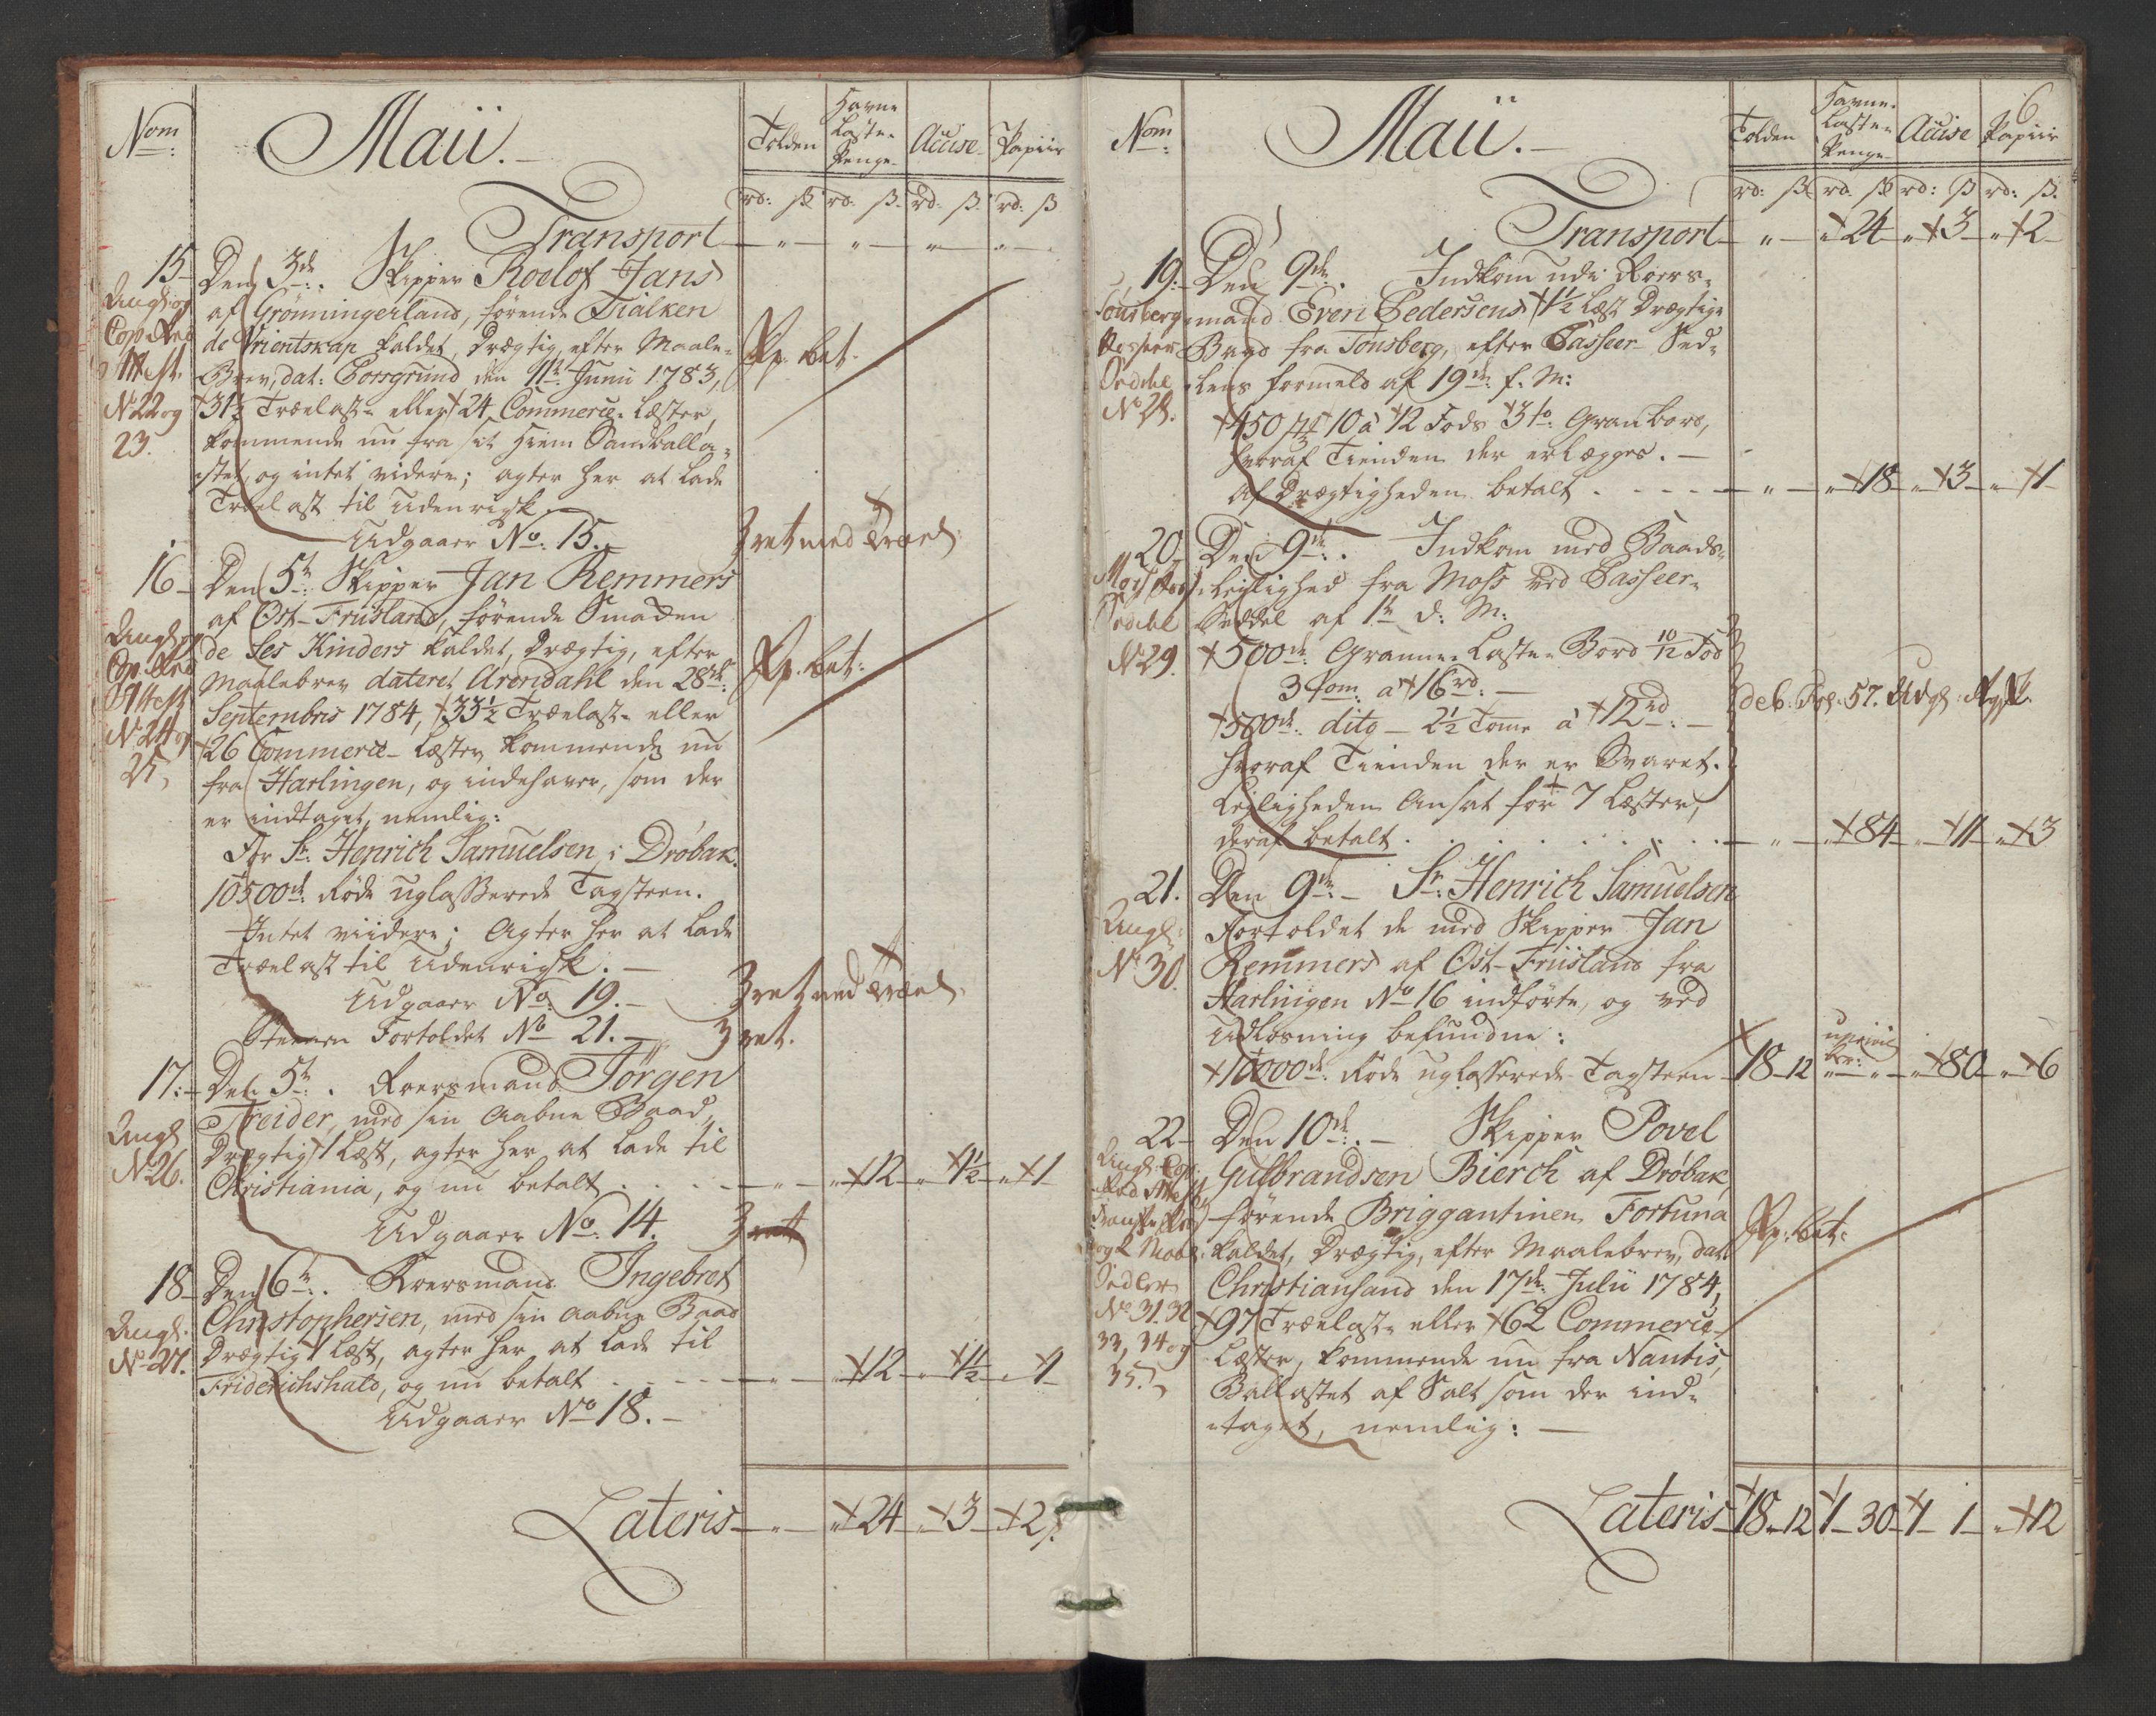 Nom:
Maii.
Tolden
Havne Laste- Penge
Accise
Papiir
rd: ß rd. ß. rd. ß. rd. ß
Transport
15 Den 3de. Skipper Roelof Jans
af Grönningerland, förende Tialken
de Vrientskap kaldet, Drægtig efter Maale-
Brev, dat: Porsgrund den 11te Junii 1783,
31½ Trælast- eller 24 Commerce-Læster,
kommende nu fra sit Hiem Sandballa-
stet, og intet videre; agter her at lade
Trælast til Udenrigsk.
Udgaaer No. 15.
Angl. og
Cop. Rd
Attest.
No 22 og
23.
Pp. bet.
16 Den 5te Skipper Jan Remmers
af Ost-Friisland, förende Smakken
de Ses Kinders kaldet, Drægtig, efter
Maalebrev dateret Arendahl den 28de
Septembris 1784, 33½ Trælast- eller
26 Commerce-Læster kommende nu
fra Harlingen, og indehaver, som der
er indtaget, nemlig:
For Sr. Henrich Samuelsen i Dröbak.
10500 st. Röde uglasserede Tagsteen.
Intet viidere; Agter her at lade
Trælast til Udenrigsk.
Udgaaer No. 19.
Steenen Fortoldet No 21.
Angl. og
Cop. Rd
Attest
No 24 og
25,
Pp. bet:
17. Den 5te. Roersmand Jörgen
Treider, med sin aabne Baad,
Drægtig 1 Læst, agter her at lade til
Christiania, og nu betalt . . . 12 1½ 1
Udgaaer No. 14.
Angl
No 26.
18 Den 6te. Roersmand Ingebret
Christophersen, med sin aabne Baad
Drægtig 1 Læst, agter her at lade til
Friderichshald, og nu betalt . . . 12 1½ 1
Udgaaer No 18.
Angl.
No 27.
Lateris 24 3 2
6
Nom:
Maii.
Tolden
Havne- Laste- Penge
Accise
Papiir
rd: ß rd. ß rd: ß rd: ß.
Transport 24 3 2
19. Den 9de. Indkom udi Roers-
mand Even Pedersens 1½ Læst Drægtige
Baad fra Tonsberg, efter Passeer-Sed-
lens formeld af 19de f. M:
450 st 10 à 12 Fods 3 to: Gran bord,
hvoraf Tienden der erlægges.
Af Drægtigheden betalt . . . 18 3 1
Tonsberg
Passeer
Seddel
No 28.
20. Den 9de. Indkom med Baads-
Leylighed fra Moss ved Passeer-
Seddel af 1te d: M:
500 st. Granne Laste-Bord 10/12 Fod
3 Tom: a 16 rd:
500 st. dito 2½ Tome à 12 rd:
hvoraf Tienden der er Svaret.
Leyligheden Ansat for 7 Læster,
deraf betalt . . . 84 11 3
Moss Pass
Seddel
No 29.
deb. Fol. 57.
21. Den 9de Sr. Henrich Samuelsen
Fortoldet de med Skipper Jan
Remmers af Ost-Friisland fra
Harlingen No 16 indförte, og ved
Udlosning befundne:
10000 st. Röde uglasserede Tagsteen 18 12 80 6
Angl:
No 30.
22 Den 10de. Skipper Povel
Gulbrandsen Bierch af Dröbak,
förende Briggantinen Fortuna
kaldet, Drægtig, efter Maalebrev, dat.
Christiansand den 17de Julii 1784,
97 Trælast- eller 62 Commerce-
Læster, kommende nu fra Nantis,
Ballastet af Salt som der ind-
taget, nemlig:
Angl. Cop.
Rd Attest
Sedler
No 31. 32
33, 34 og
35.
Pp. bet:
Lateris 18 12 1 30 1 1 12